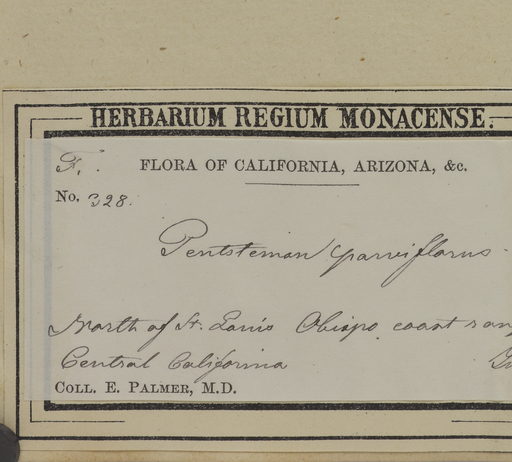 HERBARIUM REGIUM MONACENSE.
F.
FLORA OF CALIFORNIA, ARIZONA, &c.
No. 328.
Pentstemon parviflorus.
North of St. Louis Obispo coast
Central California
COLL. E. PALMER, M.D.